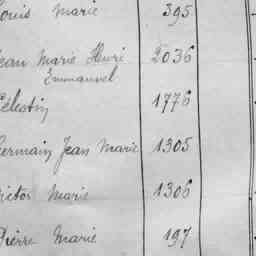 Louis Marie 395
Jean Marie Henri 2036
Emmanuel
Célestin 1776
Germain Jean Marie 1305
Victor Marie 1306
Pierre Marie 197